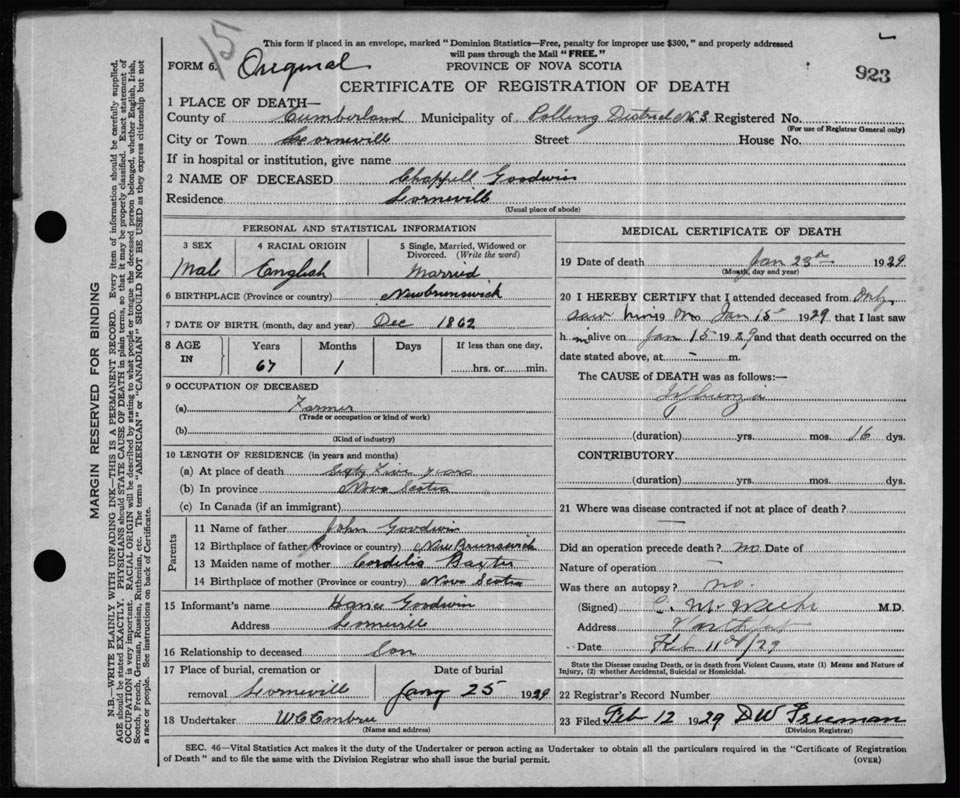 15
This form if placed in an envelope, marked "Dominion Statistics—Free, penalty for improper use $300," and properly addressed
will pass through the Mail "FREE."
FORM 6. Original PROVINCE OF NOVA SCOTIA
923
CERTIFICATE OF REGISTRATION OF DEATH
1 PLACE OF DEATH—
County of Cumberland Municipality of Polling District No 3 Registered No.
(For use of Registrar General only)
City or Town Lorneville Street House No.
If in hospital or institution, give name
2 NAME OF DECEASED Chappell Goodwin
Residence Lorneville
(Usual place of abode)
PERSONAL AND STATISTICAL INFORMATION
3 SEX 4 RACIAL ORIGIN 5 Single, Married, Widowed or
Divorced. (Write the word)
Male English Married
6 BIRTHPLACE (Province or country) Newbrunswick
7 DATE OF BIRTH (month, day and year) Dec 1862
8 AGE IN Years Months Days If less than one day,
67 1 hrs. or min.
9 OCCUPATION OF DECEASED
(a) Farmer
(Trade or occupation or kind of work)
(b)
(Kind of industry)
10 LENGTH OF RESIDENCE (in years and months)
(a) At place of death Sixty Five years
(b) In province Nova Scotia
(c) In Canada (if an immigrant)
Parents
11 Name of father John Goodwin
12 Birthplace of father (Province or country) New Brunswick
13 Maiden name of mother Cordelia Baxter
14 Birthplace of mother (Province or country) Nova Scotia
15 Informant's name Goodwin
Address Lorneville
16 Relationship to deceased Son
17 Place of burial, cremation or Date of burial
removal Lorneville Jany 25 1929
18 Undertaker W C Embree
(Name and address)
MEDICAL CERTIFICATE OF DEATH
19 Date of death Jan 23rd 1929
(Month, day and year)
20 I HEREBY CERTIFY that I attended deceased from Only
saw him on Jan 15 1929 that I last saw
h m alive on Jan 15 1929 and that death occurred on the
date stated above, at – m.
The CAUSE of DEATH was as follows:—
Influenza
(duration) yrs. mos. 16 dys.
CONTRIBUTORY
(duration) yrs. mos. dys.
21 Where was disease contracted if not at place of death?
Did an operation precede death? no Date of
Nature of operation
Was there an autopsy? no.
(Signed) C. M. M.D.
Address Northport
Date Feb 11th/29
State the Disease causing Death, or in death from Violent Causes, state (1) Means and Nature of
Injury, (2) whether Accidental, Suicidal or Homicidal.
22 Registrar's Record Number
23 Filed Feb 12 1929 D W Freeman
(Division Registrar)
SEC. 46—Vital Statistics Act makes it the duty of the Undertaker or person acting as Undertaker to obtain all the particulars required in the "Certificate of Registration
of Death" and to file the same with the Division Registrar who shall issue the burial permit. (OVER)
MARGIN RESERVED FOR BINDING
N.B.—WRITE PLAINLY WITH UNFADING INK—THIS IS A PERMANENT RECORD. Every item of information should be carefully supplied.
AGE should be stated EXACTLY. PHYSICIANS should STATE CAUSE OF DEATH in plain terms, so that it may be properly classified. Exact statement of
OCCUPATION is very important. RACIAL ORIGIN will be described by stating to what people or tongue the deceased person belonged, whether English, Irish,
Scotch, French, German, Russian, Ruthenian, etc. The terms "AMERICAN" or "CANADIAN" SHOULD NOT BE USED as they express citizenship but not
a race or people. See instructions on back of Certificate.